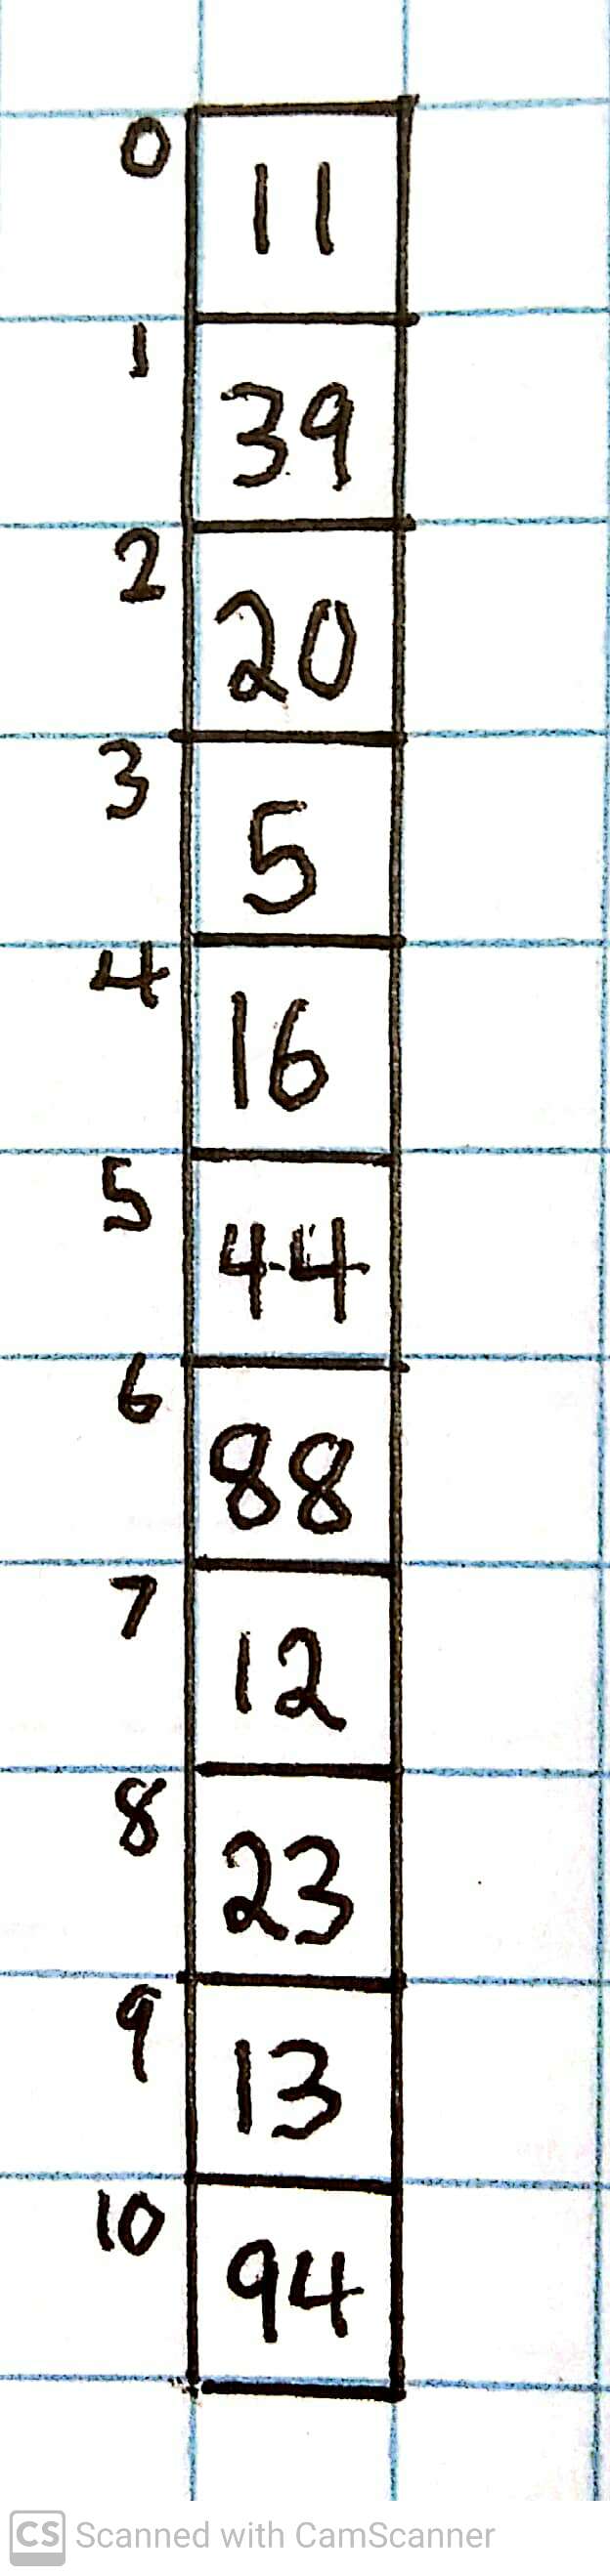 0
11
1
39
2
20
3
5
4
16
5
44
6
88
7
12
8
23
9
13
10
94
CS Scanned with CamScanner